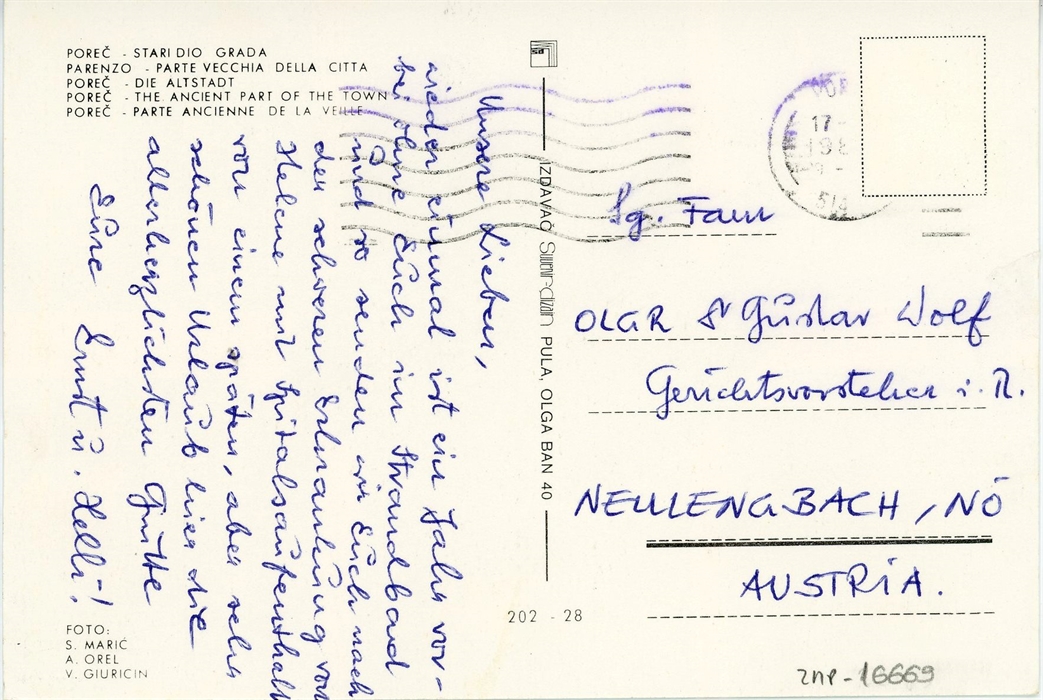 POREČ - STARI DIO GRADA
PARENZO - PARTE VECCHIA DELLA CITTA
POREČ - DIE ALTSTADT
POREČ - THE ANCIENT PART OF THE TOWN
POREČ - PARTE ANCIENNE DE LA VEILLE
Unsere Lieben,
wieder einmal ist ein Jahr vor-
bei ohne Euch im Strandbad
und so senden wir Euch nach
der schweren Erkrankung von
Helene mit Spitalsaufenthalt
von einem späten, aber sehr
schönen Urlaub hier die
allerherzlichsten Grüße
Eure Ernst u. Helli!
FOTO:
S. MARIĆ
A. OREL
V. GIURICIN
IZDAVAČ PULA, OLGA BAN 40
202 - 28
17-
198
Sg. Fam
OLGR Gustav Wolf
Gerichtsvorsteher i. R.
NEULENGBACH, NÖ
AUSTRIA.
ZNP-16669